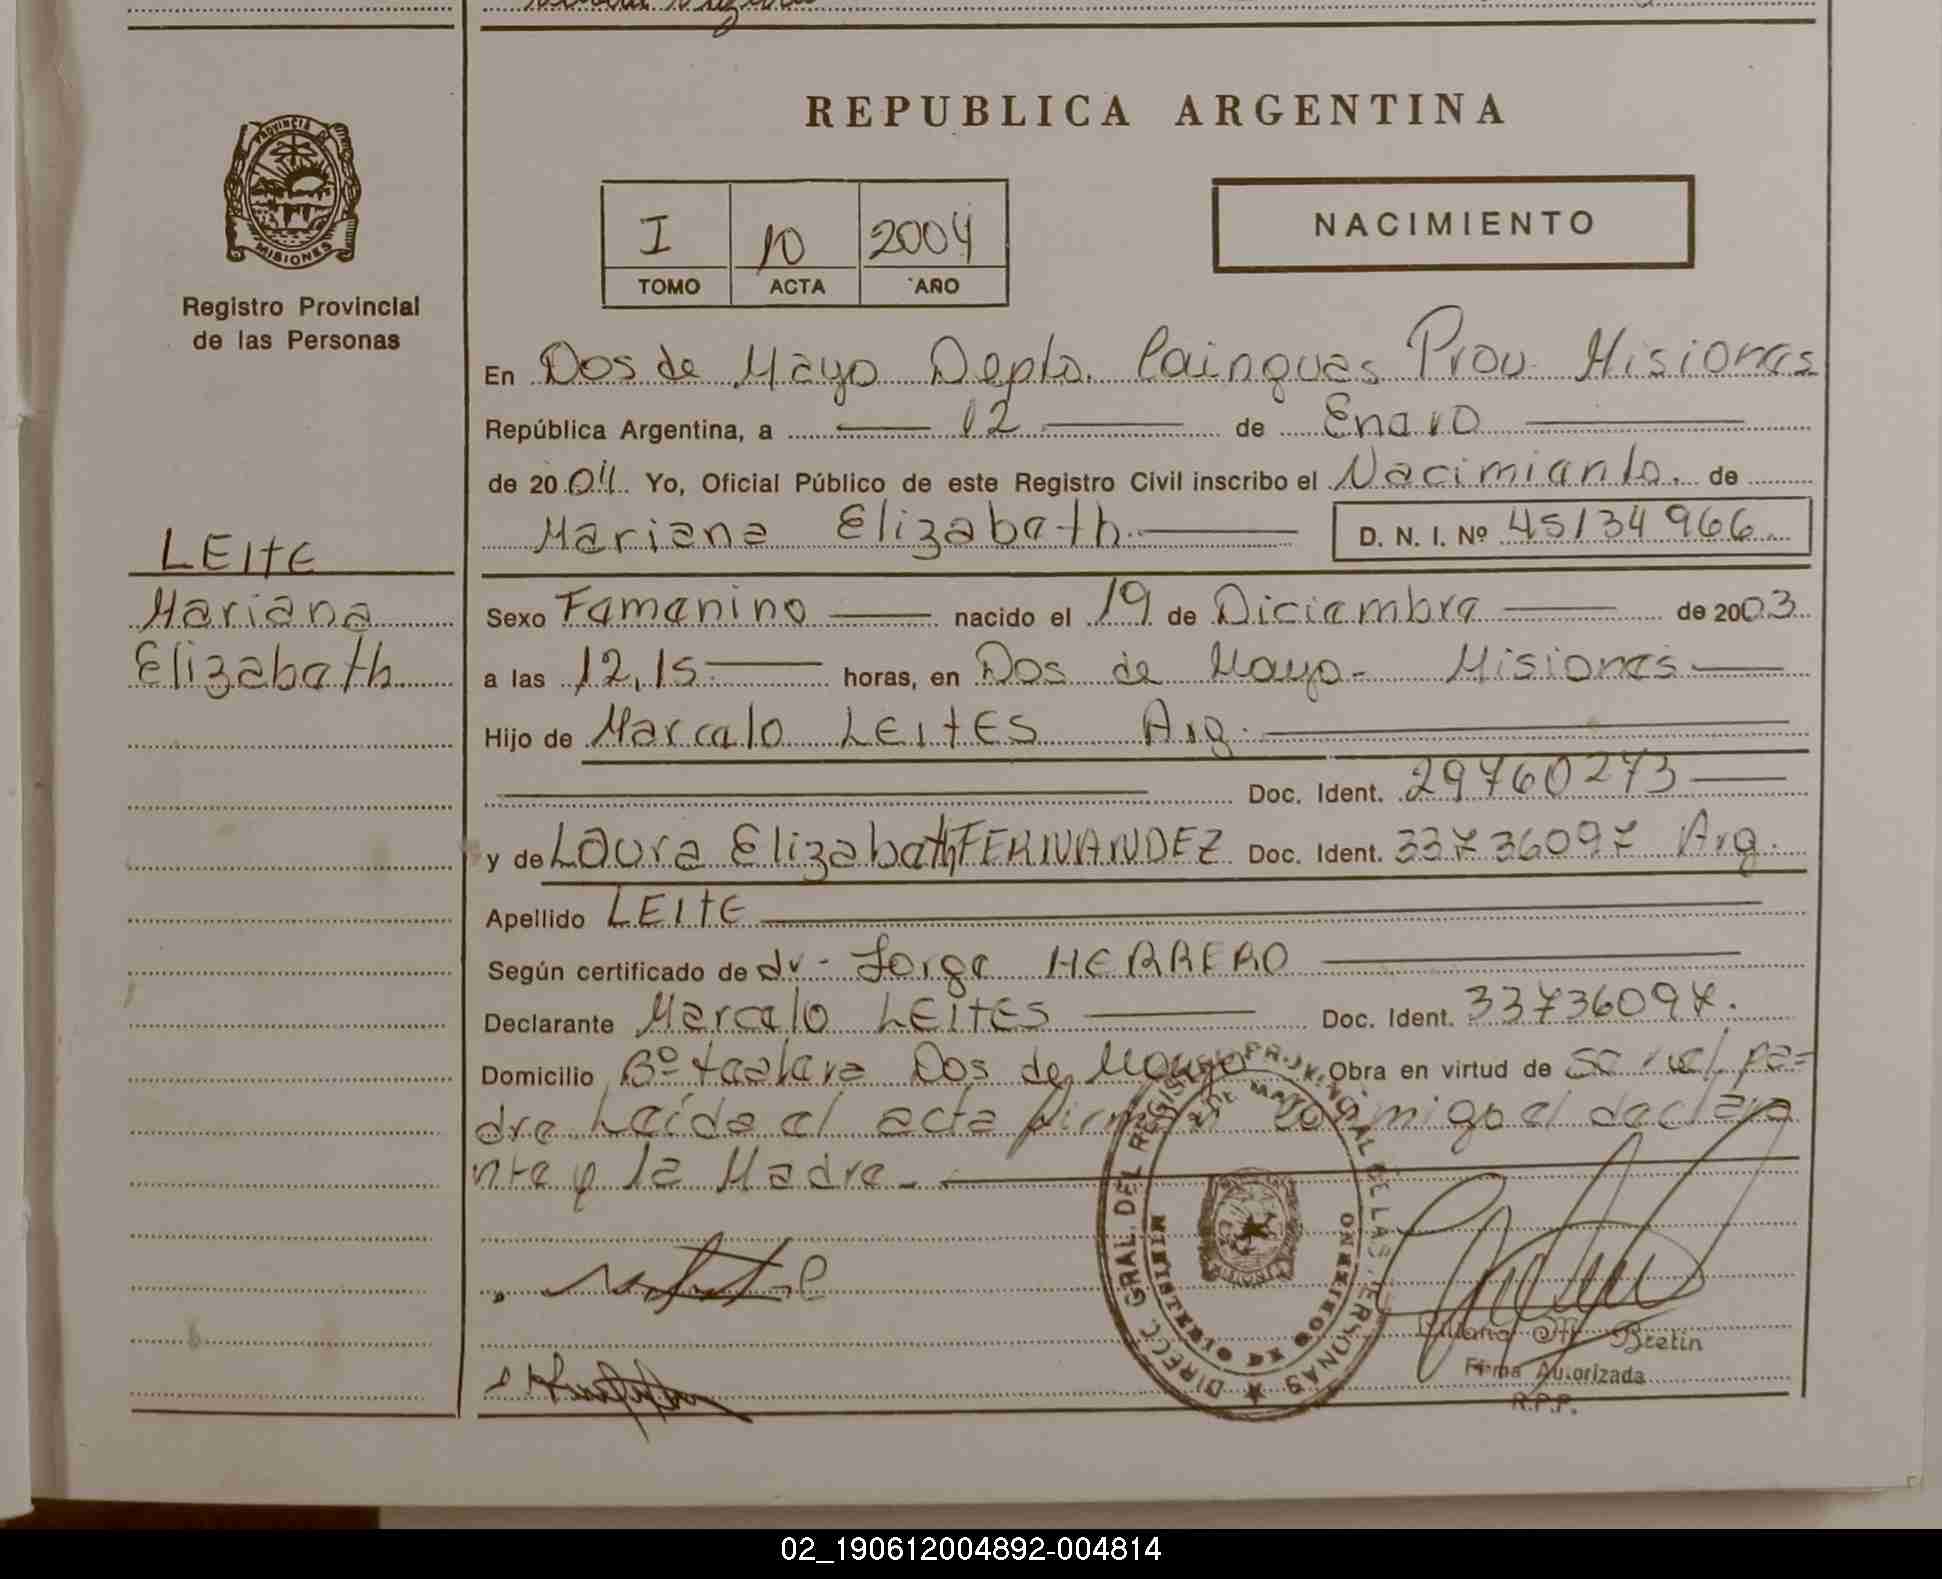 REPUBLICA ARGENTINA
PROVINCIA DE
MISIONES
Registro Provincial
de las Personas
I 10 2004
TOMO ACTA AÑO
NACIMIENTO
En Dos de Mayo Depto. Cainguas Prov. Misiones
República Argentina, a 12 de Enero
de 2004 Yo, Oficial Público de este Registro Civil inscribo el Nacimiento. de
Mariana Elizabeth D. N. I. Nº 45134966
LEITE
Mariana
Elizabeth
Sexo Femenino nacido el 19 de Diciembre de 2003
a las 12,15 horas, en Dos de Mayo - Misiones
Hijo de Marcelo LEITES Arg.
Doc. Ident. 29760273
y de Laura Elizabeth FERNANDEZ Doc. Ident. 33736097 Arg.
Apellido LEITE
Según certificado de dr - Jorge HERRERO
Declarante Marcelo LEITES Doc. Ident. 33736097.
Domicilio Bº Doc de Mayo Obra en virtud de ser el pa=
dre Leída el acta firman conmigo el declara
nte y la Madre.-
DIRECC. GRAL. DEL REGISTRO PROVINCIAL DE LAS PERSONAS
MINISTERIO DE GOBIERNO
Bretin
Firma Autorizada
R.P.P.
02_190612004892-004814